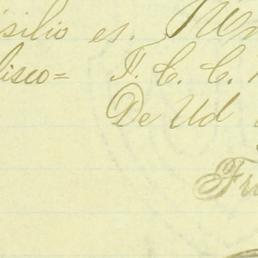 silio es.
lisco= F. C. C.
De Ud
Fr